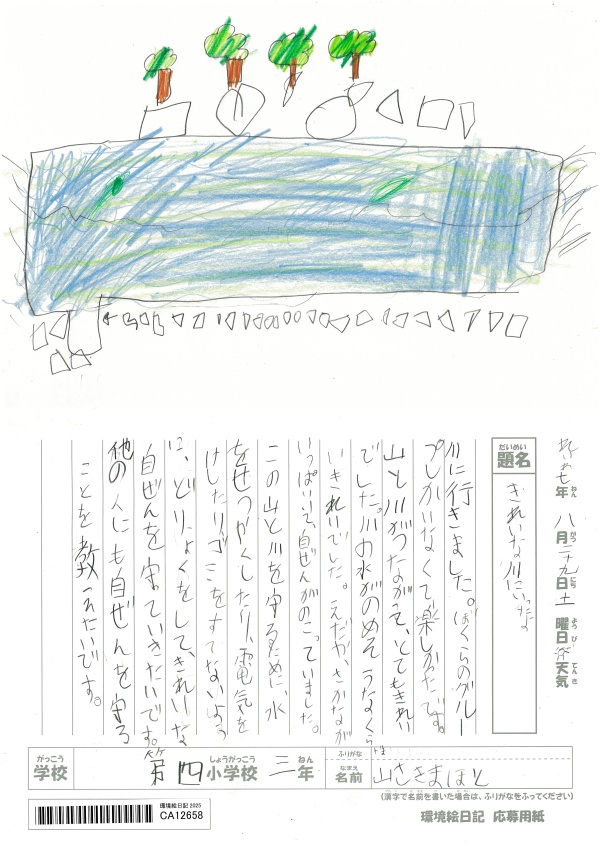 七年 八月二十九日土曜日 天気
ねん がつ にち ようび てんき
だいめい
題名
きれいな川にいったよ
川に行きました。ぼくらのグルー
プしかいなくて楽しかたです。
山と川がつながって、とてもきれい
でした。川の水がのめそうなくら
いきれいでした。えだや、さかなが
いっぱいいて、自ぜんがのこっていました。
この山と川を守るために、水
をせつやくしたり、電気を
けしたり、ゴミをすてないよう
に、どりょくをして、きれいな
自ぜんを守ていきたいです。
他の人にも自ぜんを守る
ことを教えたいです。
がっこう
学校
第四小学校
しょうがっこう
三年
ねん
ふりがな
なまえ
名前
(漢字で名前を書いた場合は、ふりがなをふってください)
環境絵日記 2025
CA12658
環境絵日記 応募用紙